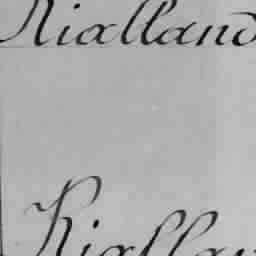 Rialland
Riallan